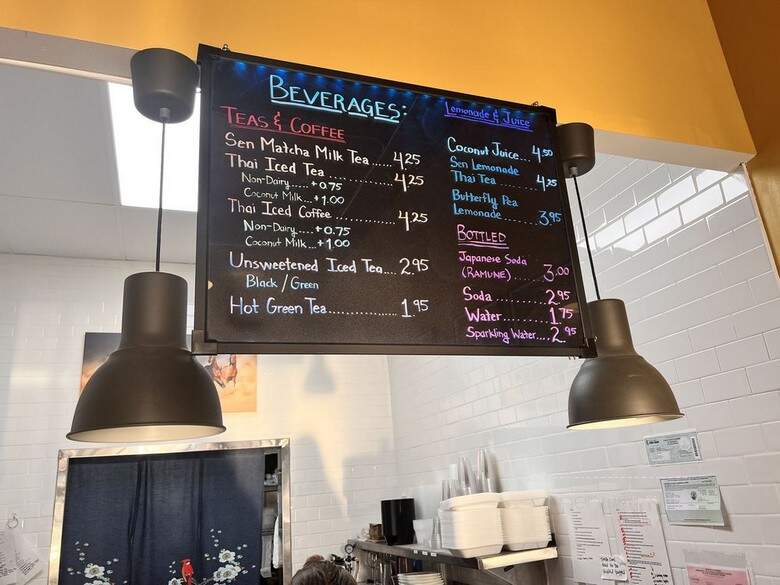 BEVERAGES:
TEAS & COFFEE
Sen Matcha Milk Tea ..... 4.25
Thai Iced Tea ............... 4.25
Non-Dairy ..... +0.75
Coconut Milk ... +1.00
Thai Iced Coffee ............ 4.25
Non-Dairy ..... +0.75
Coconut Milk ... +1.00
Unsweetened Iced Tea .... 2.95
Black / Green
Hot Green Tea ............... 1.95
Lemonade & Juice
Coconut Juice ... 4.50
Sen Lemonade
Thai Tea ............ 4.25
Butterfly Pea
Lemonade ........ 3.95
BOTTLED
Japanese Soda
(RAMUNE) ........ 3.00
Soda .............. 2.95
Water ............ 1.75
Sparkling Water .... 2.95